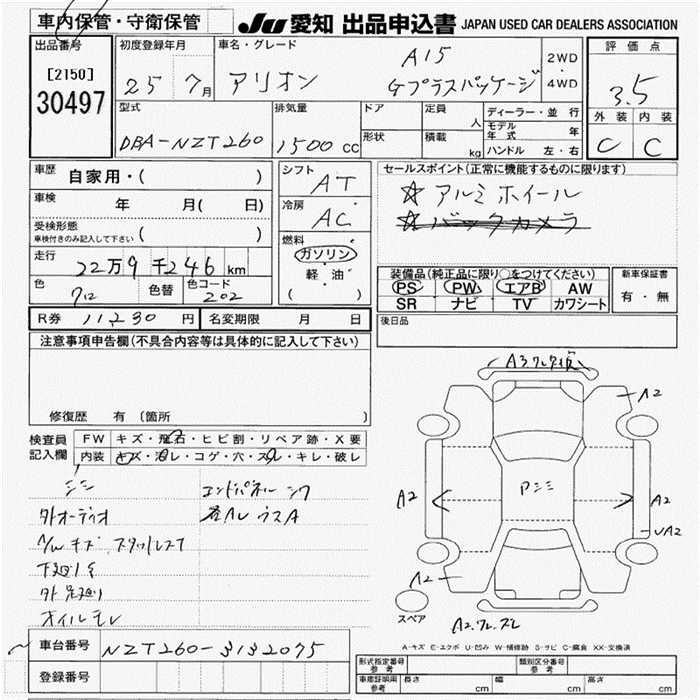 車内保管・守衛保管
JU 愛知 出品申込書 JAPAN USED CAR DEALERS ASSOCIATION
出品番号
[2150]
30497
初度登録年月
25 7月
車名・グレード
アリオン
A15
Gプラスパッケージ
2WD
・
4WD
評価点
3.5
外装 内装
C C
型式
DBA-NZT260
排気量
1500cc
ドア
形状
定員 人
積載 kg
ディーラー・並行
モデル年式 年
ハンドル 左・右
車歴 自家用・( )
車検 年 月( 日)
受検形態
車検付きのみ記入して下さい ( )
走行
22万9千246km
色 色替 色コード
202
シフト
AT
冷房
AC
燃料
ガソリン
・
軽油
( )
セールスポイント(正常に機能するものに限ります)
☆ アルミホイール
☆ バックカメラ
装備品(純正品に限り○をつけてください)
PS PW エアB AW
SR ナビ TV カワシート
新車保証書
有・無
R券 11,230円 名変期限 月 日
後日品
注意事項申告欄(不具合内容等は具体的に記入して下さい)
修復歴 有(箇所 )
検査員記入欄
FW キズ・飛石・ヒビ割・リペア跡・X要
内装 キズ・汚レ・コゲ・穴・スレ・キレ・破レ
シミ エンドパネル
外オーディオ ウスA
A/Wキズ スタッドレス
下廻りキ
外 足廻り
オイルモレ
A2
A2
A2
UA2
A2
スペア
A-キズ E-エクボ U-凹み W-補修跡 S-サビ C-腐食 XX-交換済
車台番号 NZT260-3132075
登録番号
形式指定番号 参考
類別区分番号 参考
車庫証明用 参考
長さ cm
幅 cm
高さ cm